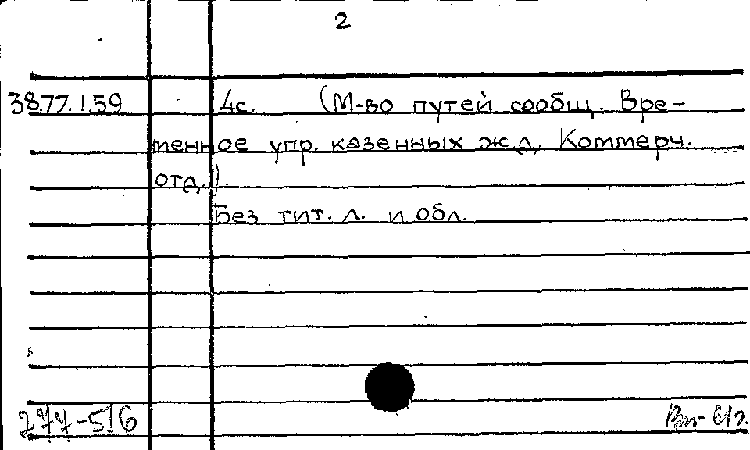 2
38.77.1.59 4с. (М-во путей сообщ. Вре-
менное упр. казенных ж.д. Коммерч.
отд.)
Без тит. л. и обл.
277-516